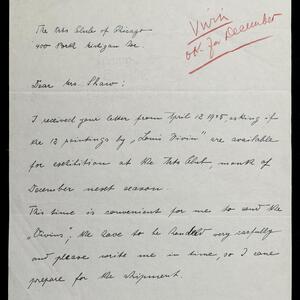 The Arts Club of Chicago
400 North Michigan Ave.
Vivin
OK for December
Dear Mrs. Shaw:
I received your letter from April 12 1935, asking if
the 12 paintings by „Louis Vivin" are available
for exhibition at the Arts Club, month of
December next season.
This time is convenient for me to send the
„Vivins", the have to be handled very carfully
and please write me in time, so I cane
prepare for the shipment.